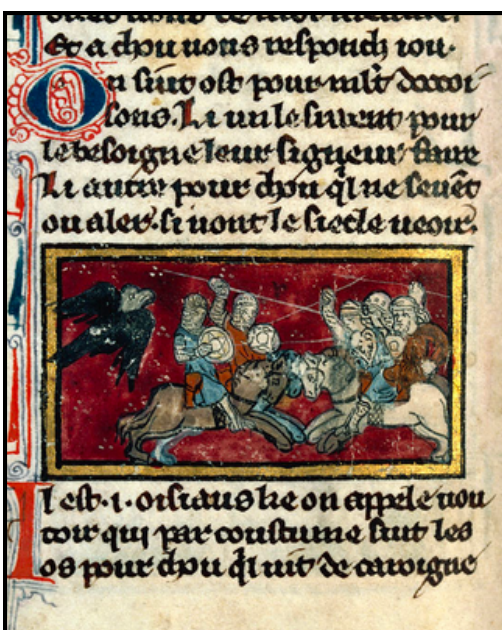 Et a chou uous responch iou·
On siut ost pour ml't doccoi
sons. Li un le siuent pour
le besoigne leur signeur faire
Li autre pour chou q̃l ne seuēt
ou aler. si uont le siecle ueoir.
Il est ·i· oisiaus ke on appele uou
toir qui par coustume siut les
os pour chou q̃l uit de caroigne